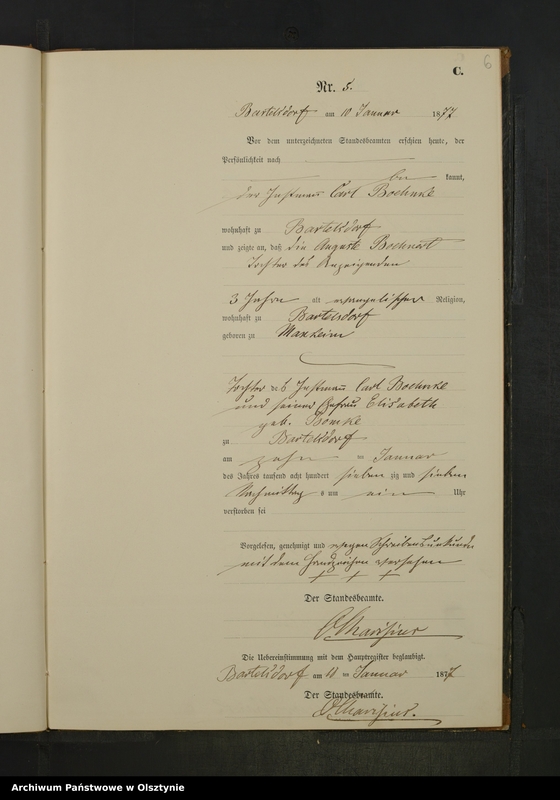 6
C.
Nr. 5.
Bartelsdorf am 10 Januar 1877
Vor dem unterzeichneten Standesbeamten erschien heute, der
Persönlichkeit nach
be kannt,
der Instmann Carl Boehnke
wohnhaft zu Bartelsdorf
und zeigte an, daß die Auguste
Tochter des Anzeigenden
3 Jahre alt evangelischer Religion,
wohnhaft zu Bartelsdorf
geboren zu
Tochter des Instmann Carl Boehnke
und seiner Ehefrau Elisabeth
geb.
zu Bartelsdorf
am zehn ten Januar
des Jahres tausend acht hundert sieben zig und sieben
Nachmittag s um ein Uhr
verstorben sei
Vorgelesen, genehmigt und wegen Schreibensunkunde
mit dem Handzeichen versehen
+ + +
Der Standesbeamte.
Die Uebereinstimmung mit dem Hauptregister beglaubigt.
Bartelsdorf am 10 ten Januar 1877
Der Standesbeamte.
Archiwum Państwowe w Olsztynie